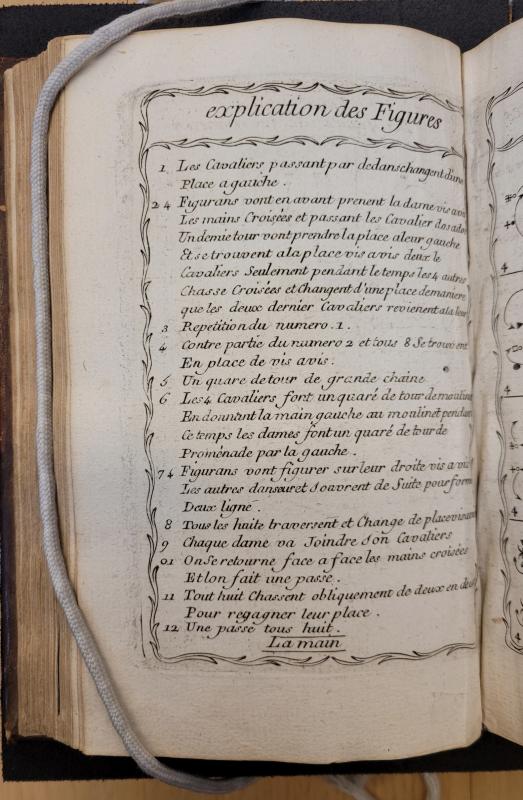 explication des Figures
1 Les Cavaliers passant par dedans changent d'une
Place a gauche.
2 4 Figurans vont en avant prenent la dame vis avis
Les mains Croisées et passant les Cavalier dos ados
Un demie tour vont prendre la place a leur gauche
Et se trouvent ala place vis avis deux le
Cavaliers Seulement pendant le temps les 4 autres
Chasse Croisées et Changent d'une place de maniere
que les deux dernier Cavaliers revienent ala leur
3 Repetition du numero .1.
4 Contre partie du numero 2 et tous 8 Se trouvent
En place de vis avis.
5 Un quare de tour de grande chaine
6 Les 4 Cavaliers font un quaré de tour de moulinet
En donnant la main gauche au moulinet pendant
Ce temps les dames font un quaré de tour de
Promenade par la gauche.
7 4 Figurans vont figurer sur leur droite vis avis
Les autres danseur et s'ouvrent de Suite pour former
Deux ligne.
8 Tous les huite traversent et Change de place vis avis
9 Chaque dame va Joindre Son Cavaliers
01 On Se retourne face a face les mains croisées
Et lon fait une passe.
11 Tout huit Chassent obliquement de deux en deux
Pour regagner leur place.
12 Une passe tous huit.
La main